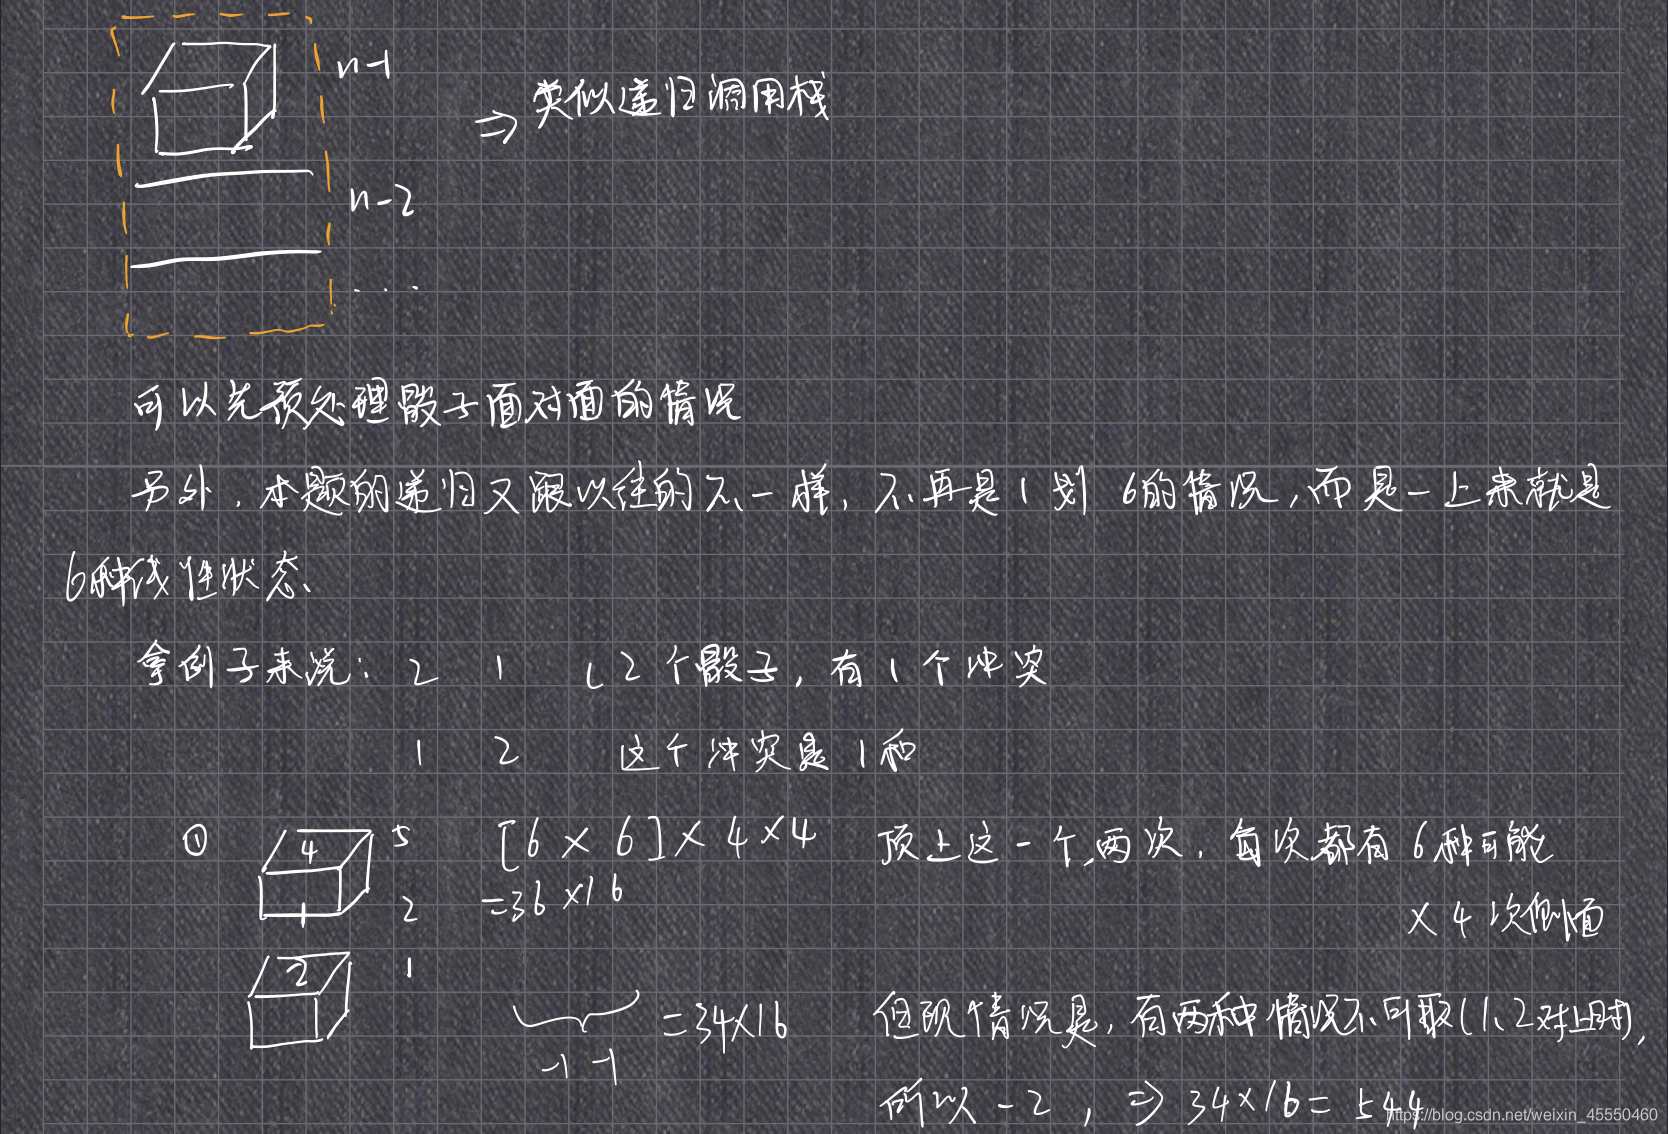 n-1
⇒ 类似递归调用栈
n-2
...
可以先预处理骰子面对面的情况
另外，本题的递归又跟以往的不一样，不再是1划6的情况，而是一上来就是
6种线性状态、
拿例子来说： 2 1 ( 2个骰子，有1个冲突
1 2 这个冲突是1和
① 4 5 [6×6]×4×4 顶上这一个，两次，每次都有6种可能
1 2 =36×16 ×4次侧面
2 1
-1 -1 =34×16 但现情况是，有两种情况不可取(1、2对上时)，
所以-2，⇒34×16=544
https://blog.csdn.net/weixin_45550460